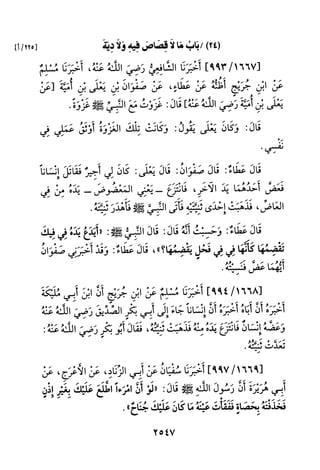 (٢٤) / بَابُ مَا لاَ قِصَاصَ فِيهِ وَلاَ دِيَةَ
[٢٢٥/أ]
[٩٩٣/١٦٦٧] أَخْبَرَنَا الشَّافِعِيُّ رَضِيَ اللَّهُ عَنْهُ، أَخْبَرَنَا مُسْلِمٌ
عَنْ ابْنِ جُرَيْجٍ أَظُنُّهُ عَنْ عَطَاءٍ، عَنْ صَفْوَانَ بْنِ يَعْلَى بْنِ أُمَيَّةَ [عَنْ
يَعْلَى بْنِ أُمَيَّةَ رَضِيَ اللَّهُ عَنْهُ] قَالَ: غَزَوْتُ مَعَ النَّبِيِّ ﷺ غَزْوَةً.
قَالَ: وَكَانَ يَعْلَى يَقُولُ: وَكَانَتْ تِلْكَ الْغَزْوَةُ أَوْثَقَ عَمَلِي فِي
نَفْسِي.
قَالَ عَطَاءٌ: قَالَ صَفْوَانُ: قَالَ يَعْلَى: كَانَ لِي أَجِيرٌ فَقَاتَلَ إِنْسَاناً
فَعَضَّ أَحَدُهُمَا يَدَ الآخَرِ، فَانْتَزَعَ ـ يَعْنِي الْمَعْضُوضَ ـ يَدَهُ مِنْ فِي
الْعَاضِّ، فَذَهَبَتْ إِحْدَى ثَنِيَّتَيْهِ فَأَتَى النَّبِيَّ ﷺ فَأَهْدَرَ ثَنِيَّتَهُ.
قَالَ عَطَاءٌ: وَحَسِبْتُ أَنَّهُ قَالَ: قَالَ النَّبِيُّ ﷺ: «أَيَدَعُ يَدَهُ فِي فِيكَ
تَقْضِمُهَا كَأَنَّهَا فِي فِي فَحْلٍ يَقْضِمُهَا؟»، قَالَ عَطَاءٌ: وَقَدْ أَخْبَرَنِي صَفْوَانُ
أَيُّهُمَا عَضَّ فَنَسِيتُهُ.
[٩٩٤/١٦٦٨] أَخْبَرَنَا مُسْلِمٌ عَنْ ابْنِ جُرَيْجٍ أَنَّ ابْنَ أَبِي مُلَيْكَةَ
أَخْبَرَهُ أَنَّ أَبَاهُ أَخْبَرَهُ أَنَّ إِنْسَاناً جَاءَ إِلَى أَبِي بَكْرٍ الصِّدِّيقِ رَضِيَ اللَّهُ عَنْهُ
وَعَضَّهُ إِنْسَانٌ فَانْتَزَعَ يَدَهُ مِنْهُ فَذَهَبَتْ ثَنِيَّتُهُ، فَقَالَ أَبُو بَكْرٍ رَضِيَ اللَّهُ عَنْهُ:
تَعَدَّتْ ثَنِيَّتُهُ.
[٩٩٧/١٦٦٩] أَخْبَرَنَا سُفْيَانُ عَنْ أَبِي الزِّنَادِ، عَنْ الأَعْرَجِ، عَنْ
أَبِي هُرَيْرَةَ أَنَّ رَسُولَ اللَّهِ ﷺ قَالَ: «لَوْ أَنَّ امْرَءاً اطَّلَعَ عَلَيْكَ بِغَيْرِ إِذْنٍ
فَخَذَفْتَهُ بِحَصَاةٍ فَفَقَأْتَ عَيْنَهُ مَا كَانَ عَلَيْكَ جُنَاحٌ».
٢٥٤٧